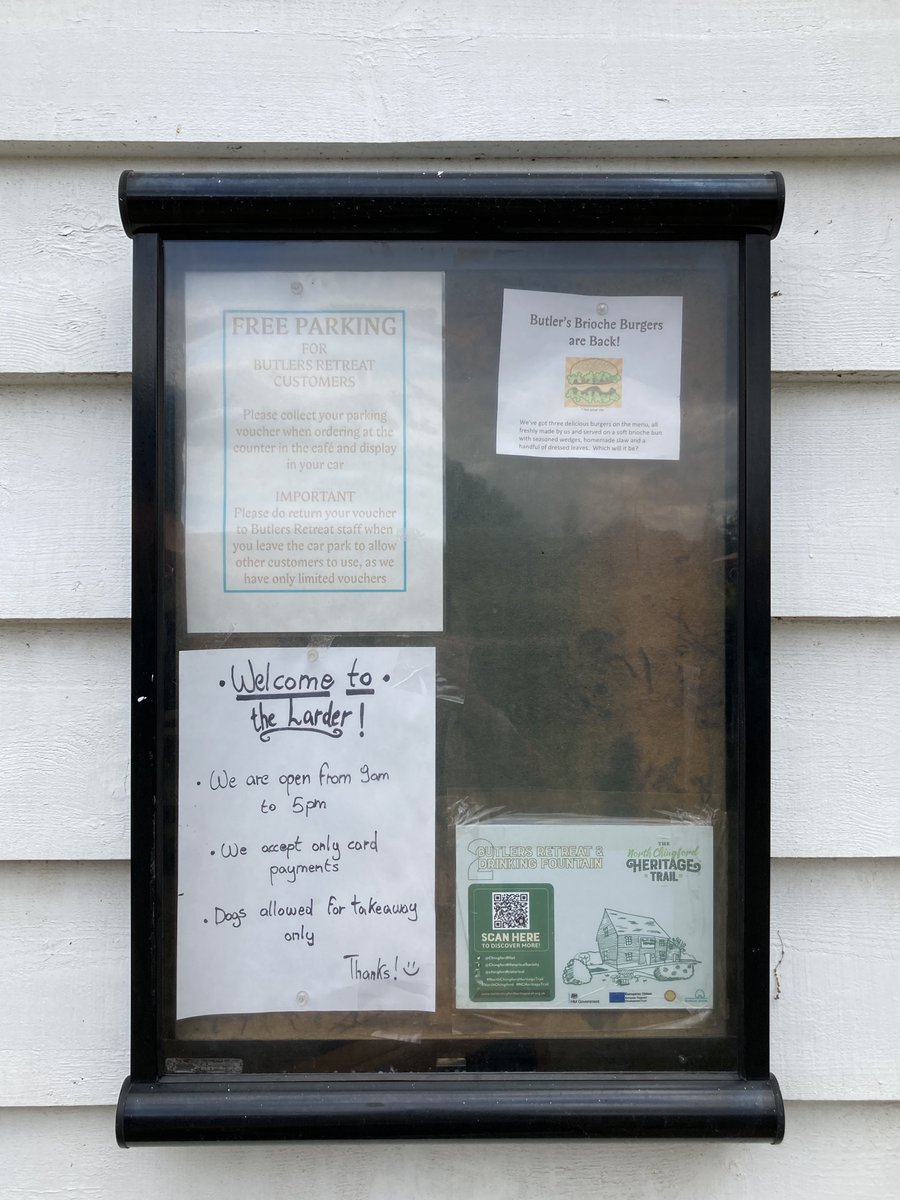 FREE PARKING
FOR
BUTLERS RETREAT
CUSTOMERS
Please collect your parking
voucher when ordering at the
counter in the café and display
in your car
IMPORTANT
Please do return your voucher
to Butlers Retreat staff when
you leave the car park to allow
other customers to use, as we
have only limited vouchers
Butler's Brioche Burgers
are Back!
We've got three delicious burgers on the menu, all
freshly made by us and served on a soft brioche bun
with seasoned wedges, homemade slaw and a
handful of dressed leaves. Which will it be?
• Welcome to •
the Larder!
• We are open from 9am
to 5pm
• We accept only card
payments
• Dogs allowed for takeaway
only
Thanks! :)
2
BUTLERS RETREAT &
DRINKING FOUNTAIN
THE
North Chingford
HERITAGE
TRAIL
SCAN HERE
TO DISCOVER MORE!
HM Government
European Union